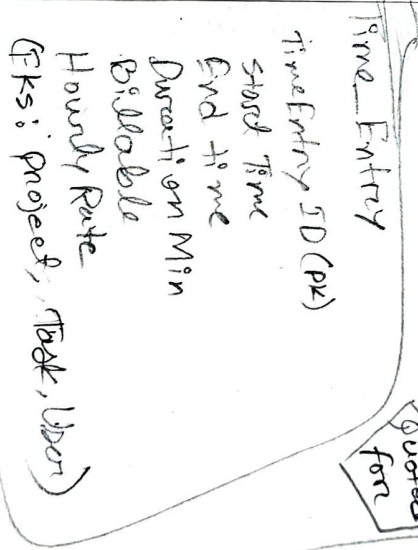 Time_Entry
TimeEntry ID (PK)
Start Time
End time
Duration Min
Billable
Hourly Rate
(FKs: project, Task, User)
for